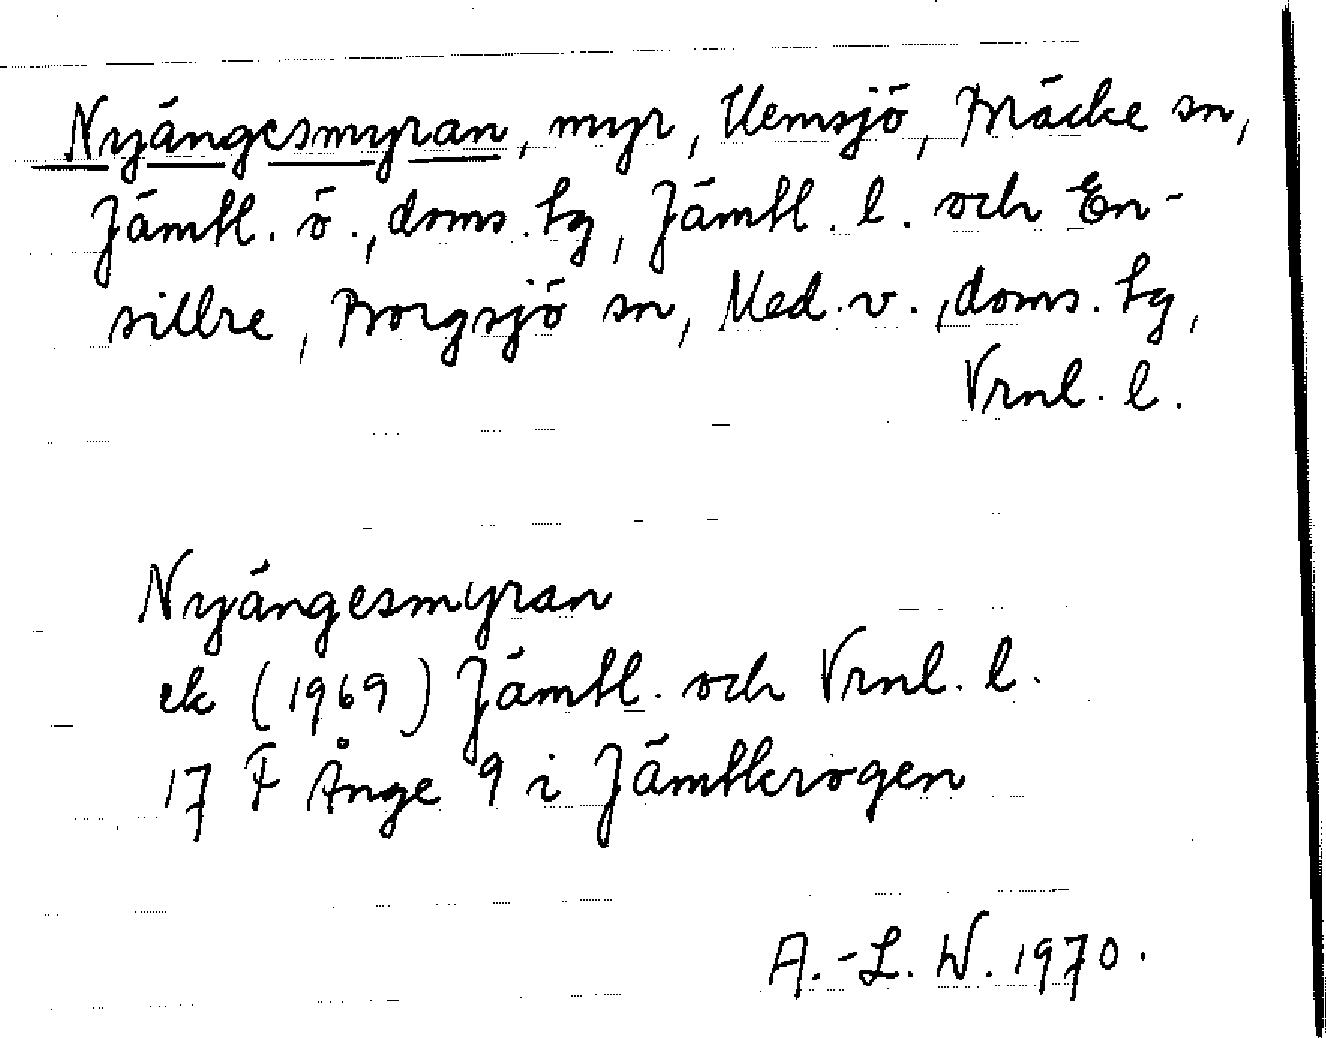 Nyängesmyran, myr, Hemsjö, Bräcke sn,
Jämtl. ö., doms. tg, Jämtl. l. och En-
sillre, Borgsjö sn, Med. v., doms. tg,
Vrnl. l.
Nyängesmyran
ek (1969) Jämtl. och Vrnl. l.
17 F Ånge 9 i Jämtkrogen
A.-L. W. 1970.